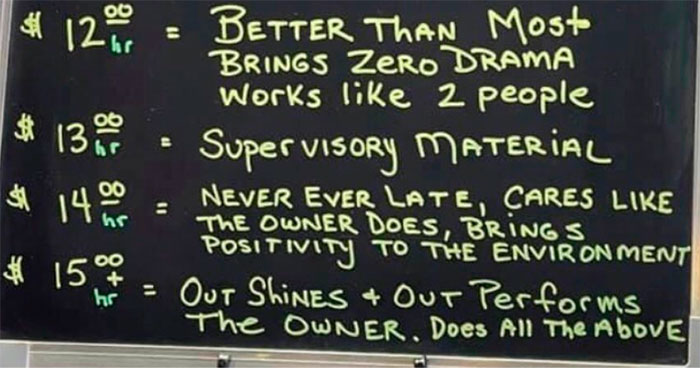 $ 12.00 hr = BETTER THAN MOST
BRINGS ZERO DRAMA
WORKS like 2 people
$ 13.00 hr = SUPERVISORY MATERIAL
$ 14.00 hr = NEVER EVER LATE, CARES LIKE
THE OWNER DOES, BRINGS
POSITIVITY TO THE ENVIRONMENT
$ 15.00+ hr = OUT SHINES + OUT PERFORMS
THE OWNER. DOES ALL THE ABOVE